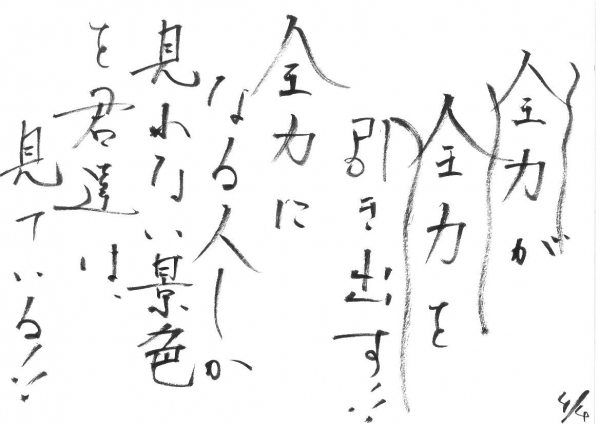 全力が
全力を
引き出す!!
全力に
なる人しか
見れない景色
を君達は、
見ている!!
4/4